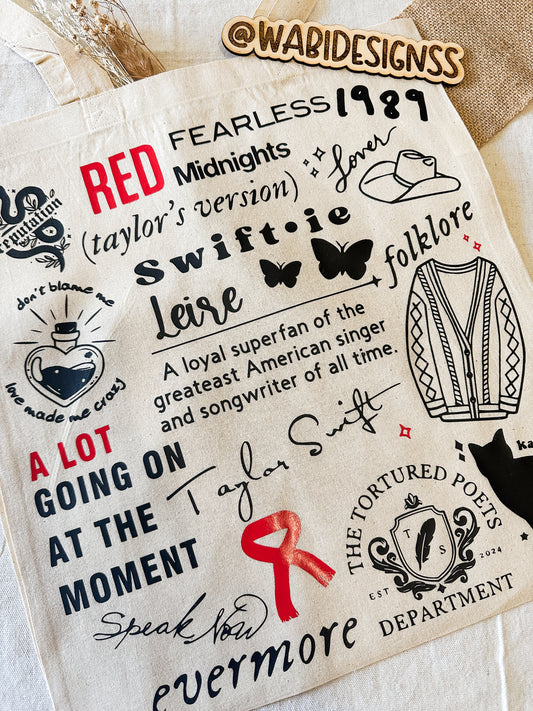 @WABIDESIGNSS
RED
FEARLESS
1989
Midnights
(taylor's version)
lover
reputation
Swift•ie
folklore
Leire
don't blame me
love made me crazy
A loyal superfan of the
greateast American singer
and songwriter of all time.
A LOT
GOING ON
AT THE
MOMENT
Taylor Swift
ka
THE TORTURED POETS
T S
EST 2024
DEPARTMENT
Speak Now
evermore